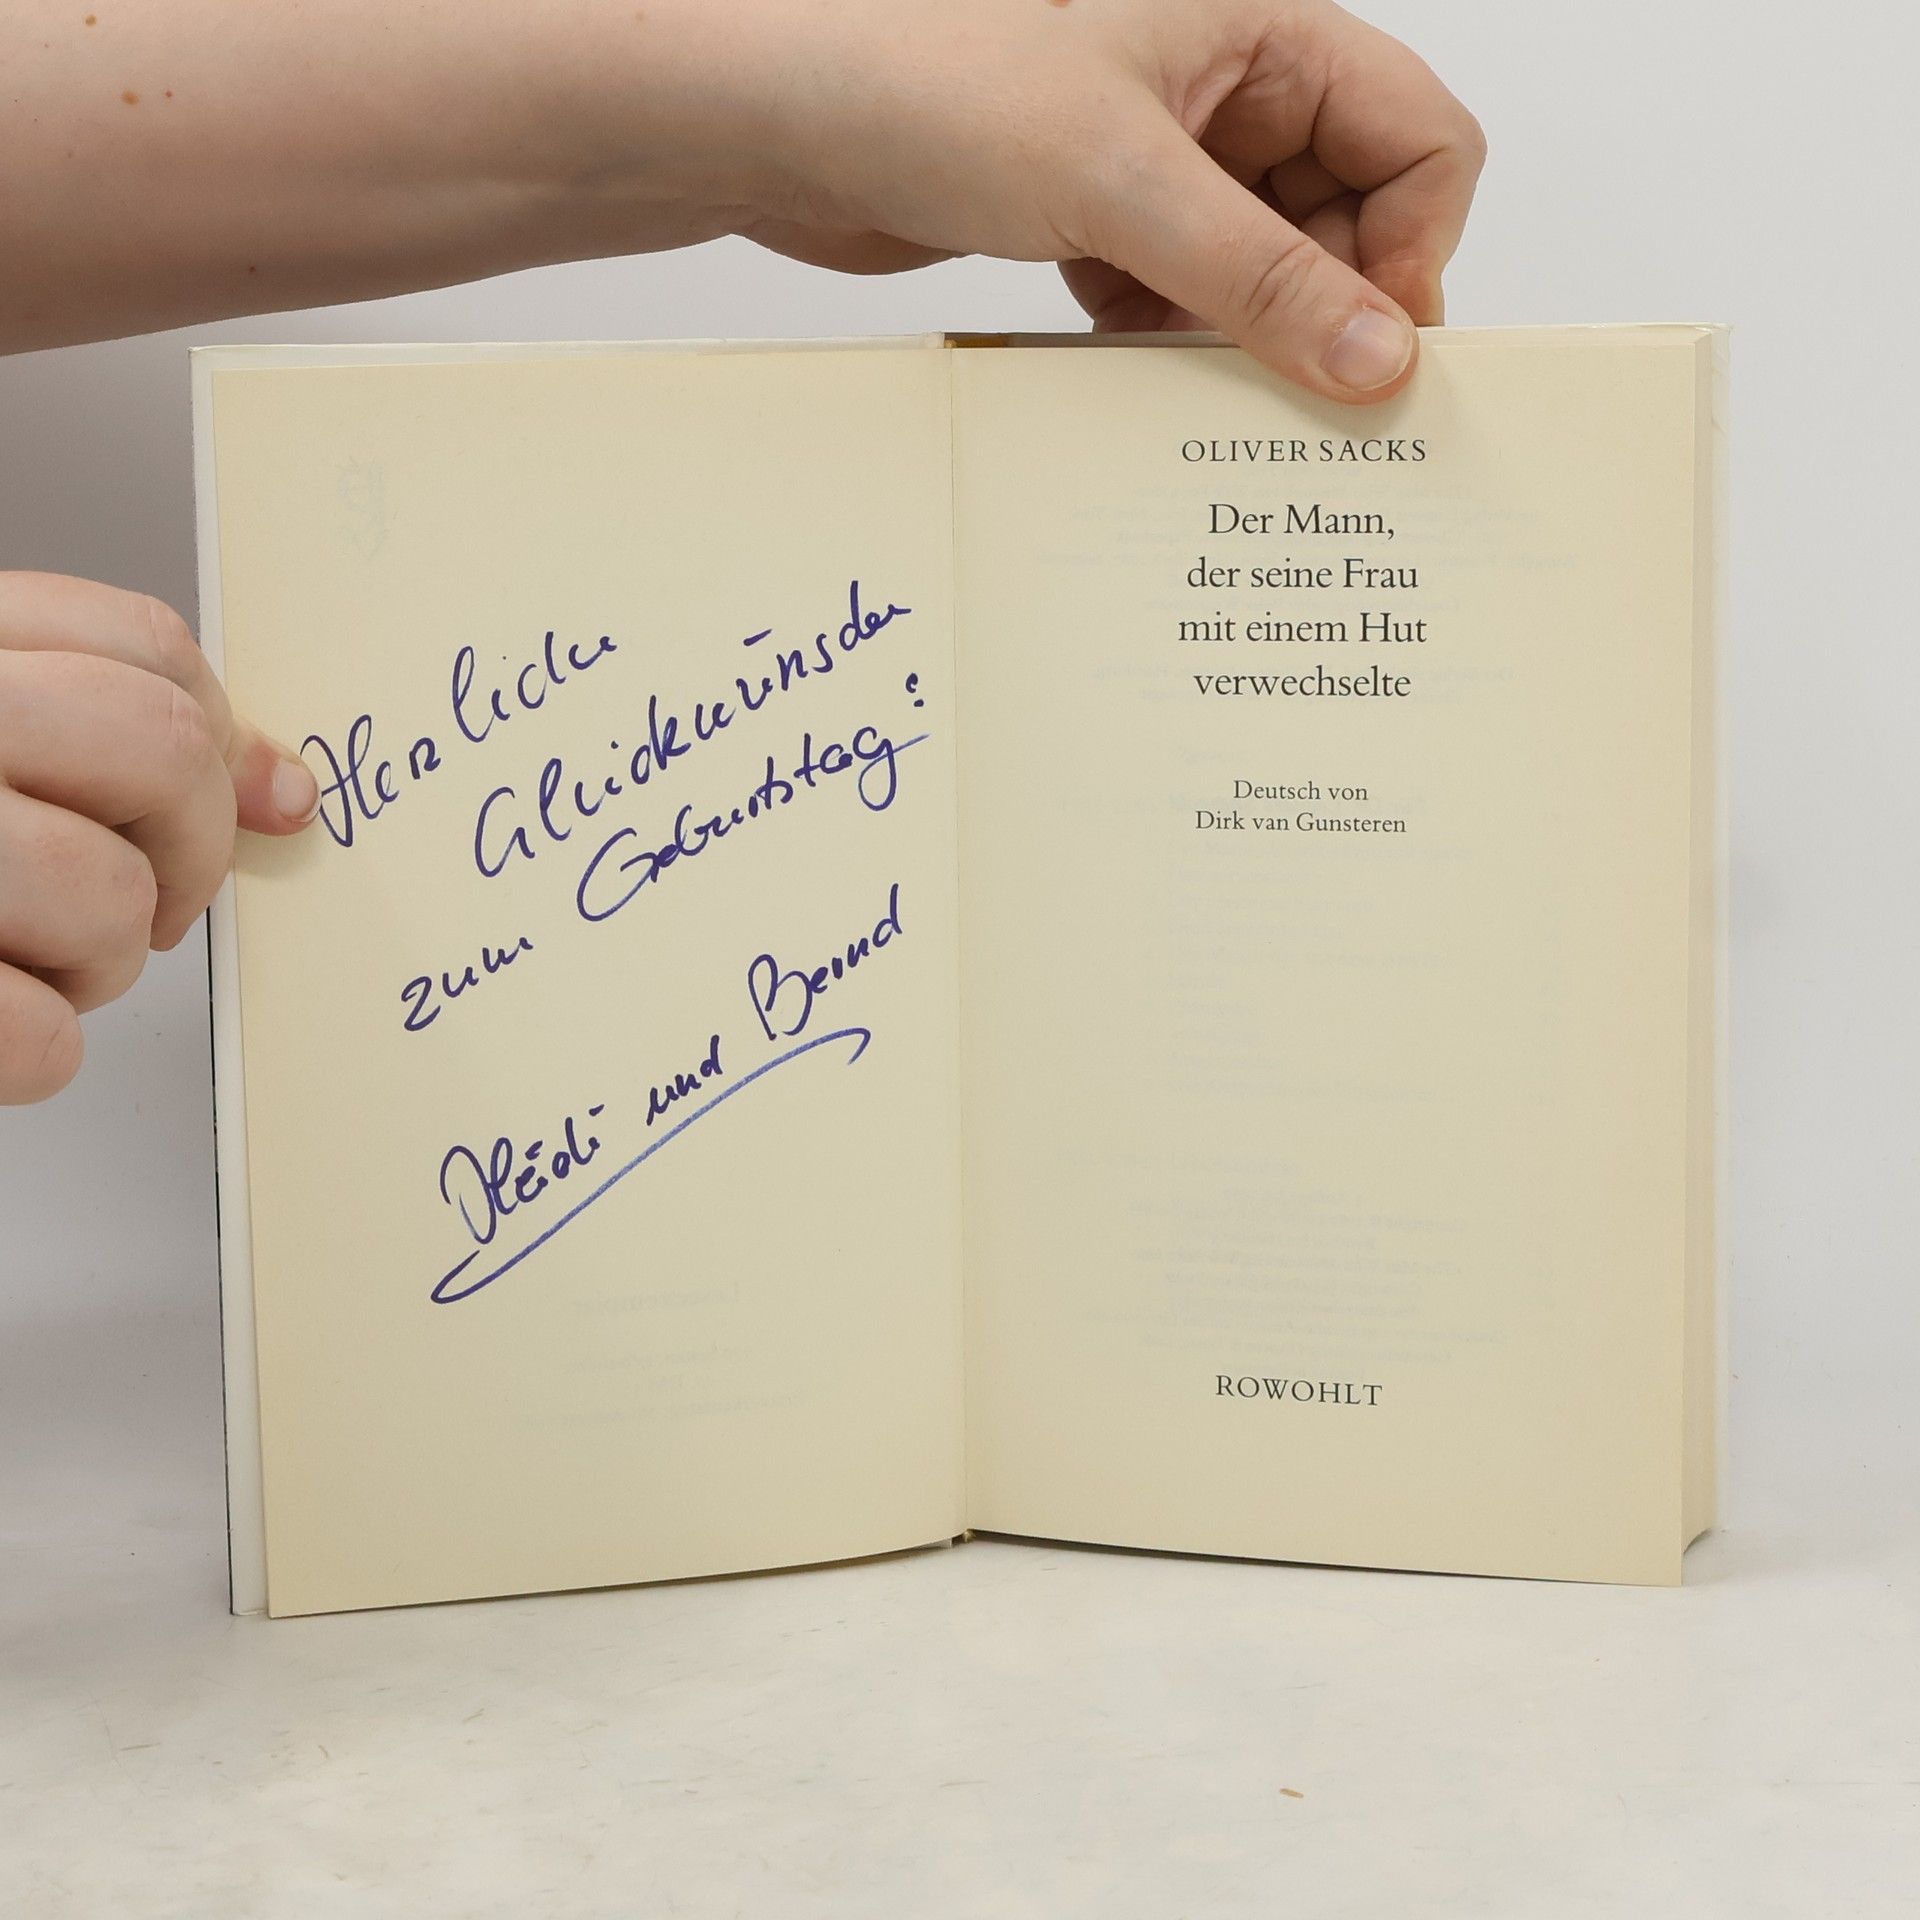 Herzliche
Glückwünsche
zum Geburtstag!
Heidi und Bernd
OLIVER SACKS
Der Mann,
der seine Frau
mit einem Hut
verwechselte
Deutsch von
Dirk van Gunsteren
ROWOHLT